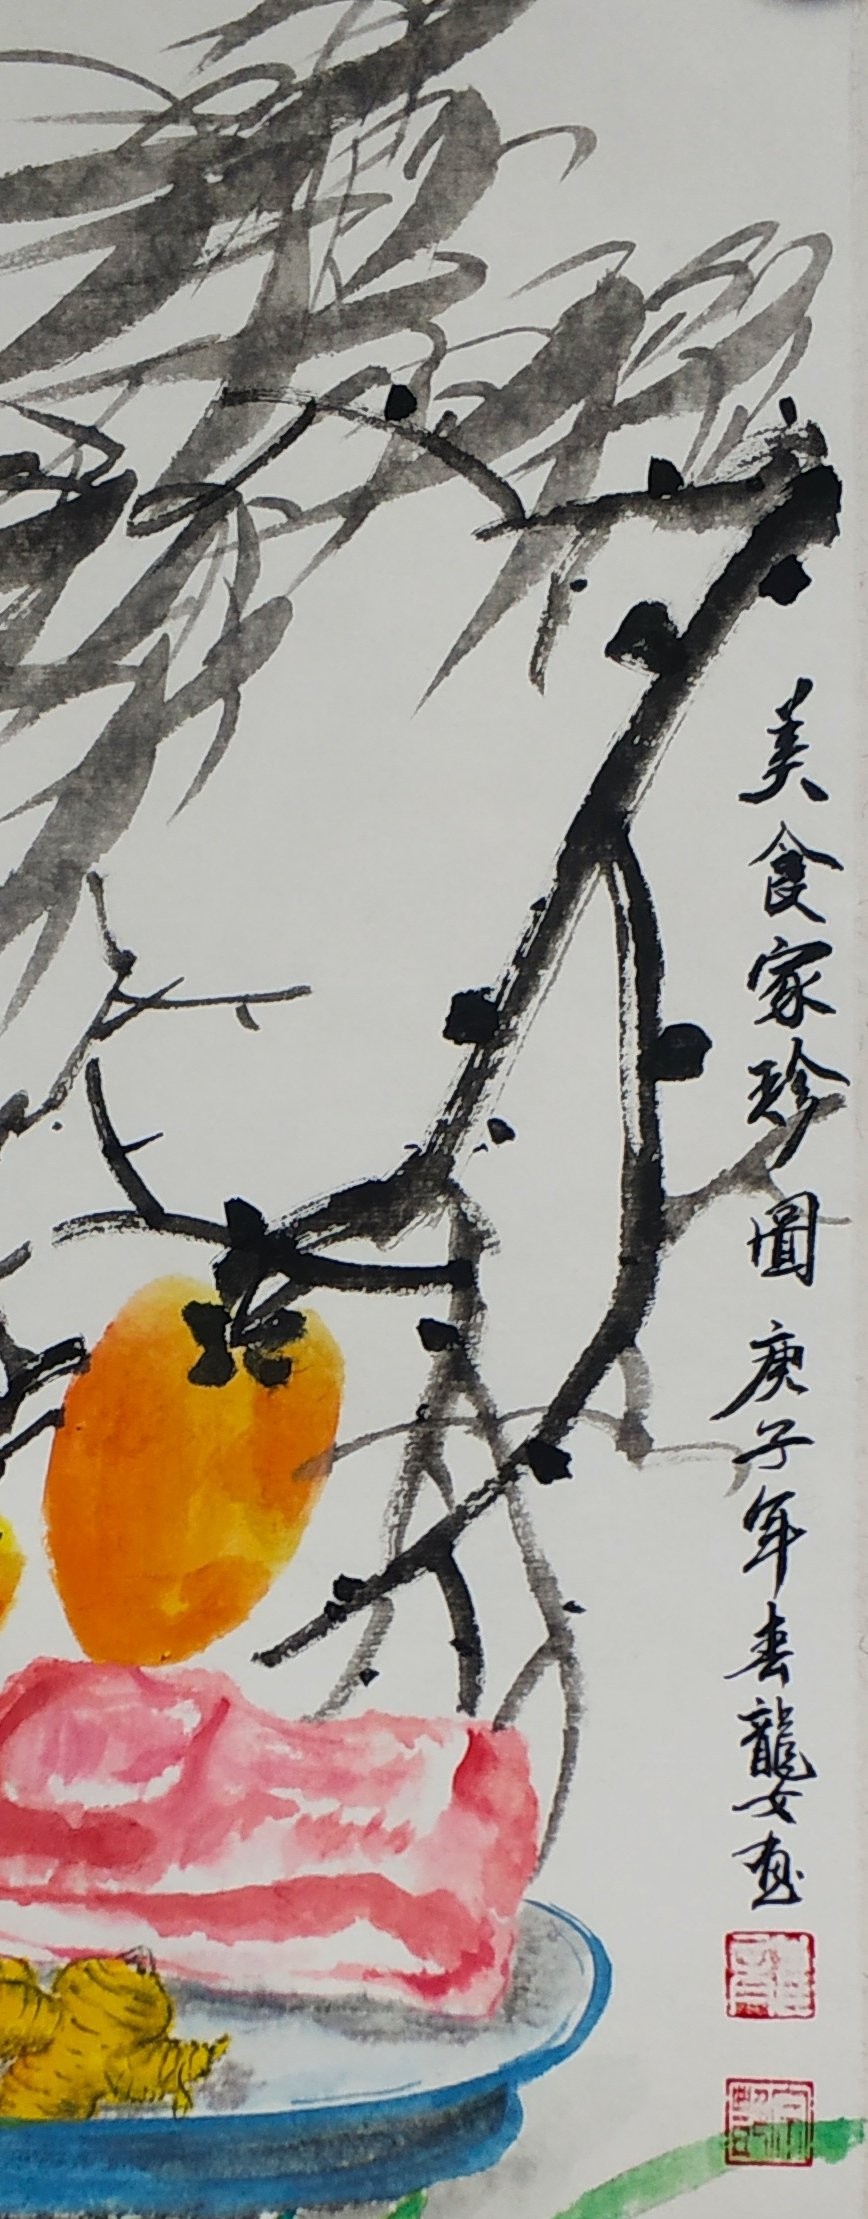 美食家珍圖 庚子年春龍女畫